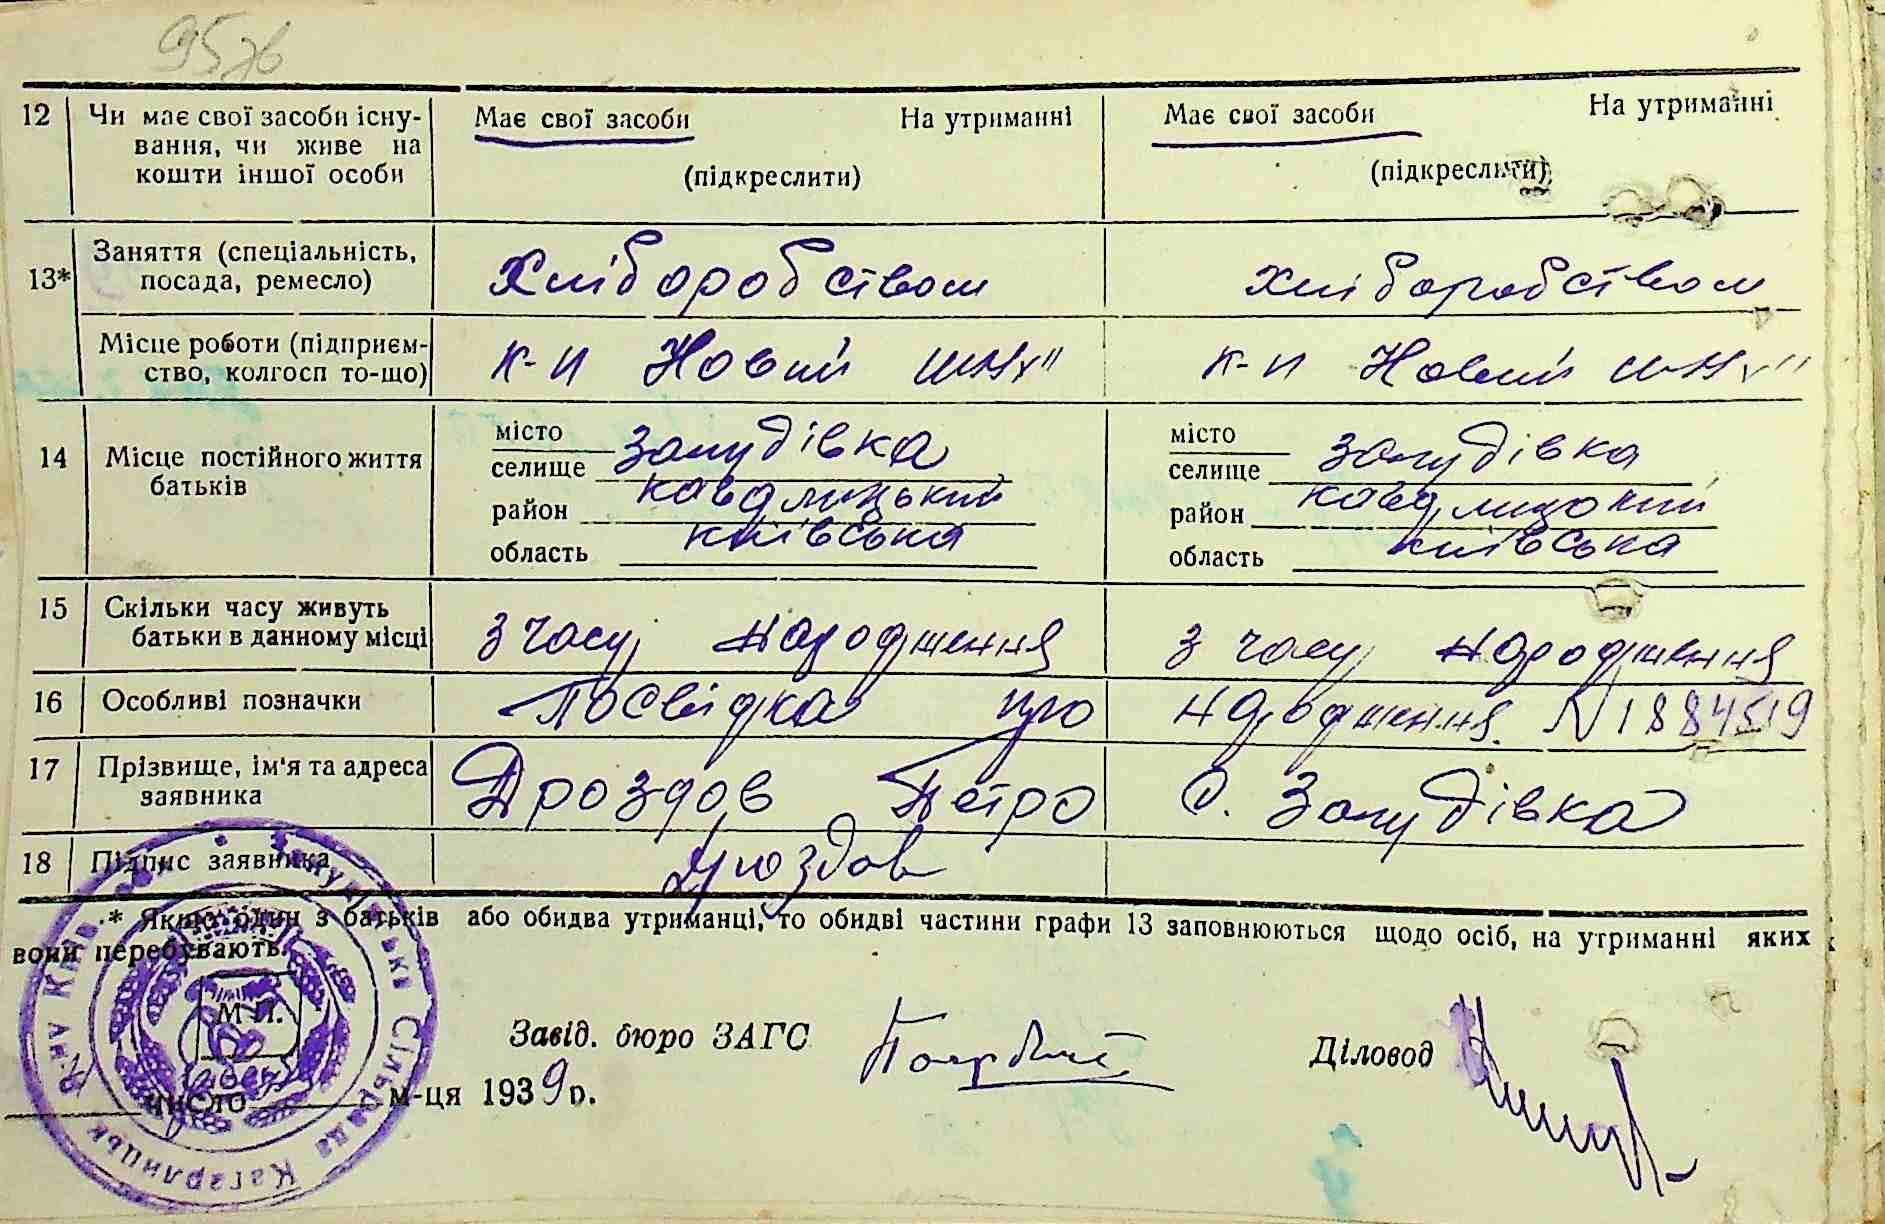 95зв
12 Чи має свої засоби існу- Має свої засоби На утриманні Має свої засоби На утриманні
вання, чи живе на
кошти іншої особи (підкреслити) (підкреслити)
13* Заняття (спеціальність, Хліборобством хліборобством
посада, ремесло)
Місце роботи (підприєм- к-п Новий шлях" к-п Новий шлях"
ство, колгосп то-що)
14 Місце постійного життя місто місто
батьків селище Залудівка селище Залудівка
район район
область київська область київська
15 Скільки часу живуть З часу народження З часу народження
батьки в данному місці
16 Особливі позначки Посвідка про народження N 1884519
17 Прізвище, ім'я та адреса Дроздов Петро С. Залудівка
заявника
18 Підпис заявника Дроздов
* Якщо один з батьків або обидва утриманці, то обидві частини графи 13 заповнюються щодо осіб, на утриманні яких
вони перебувають.
М П.
Завід. бюро ЗАГС Діловод
число м-ця 1939 р.
Сільрада Кагарлицьк. Р-ну Київ.